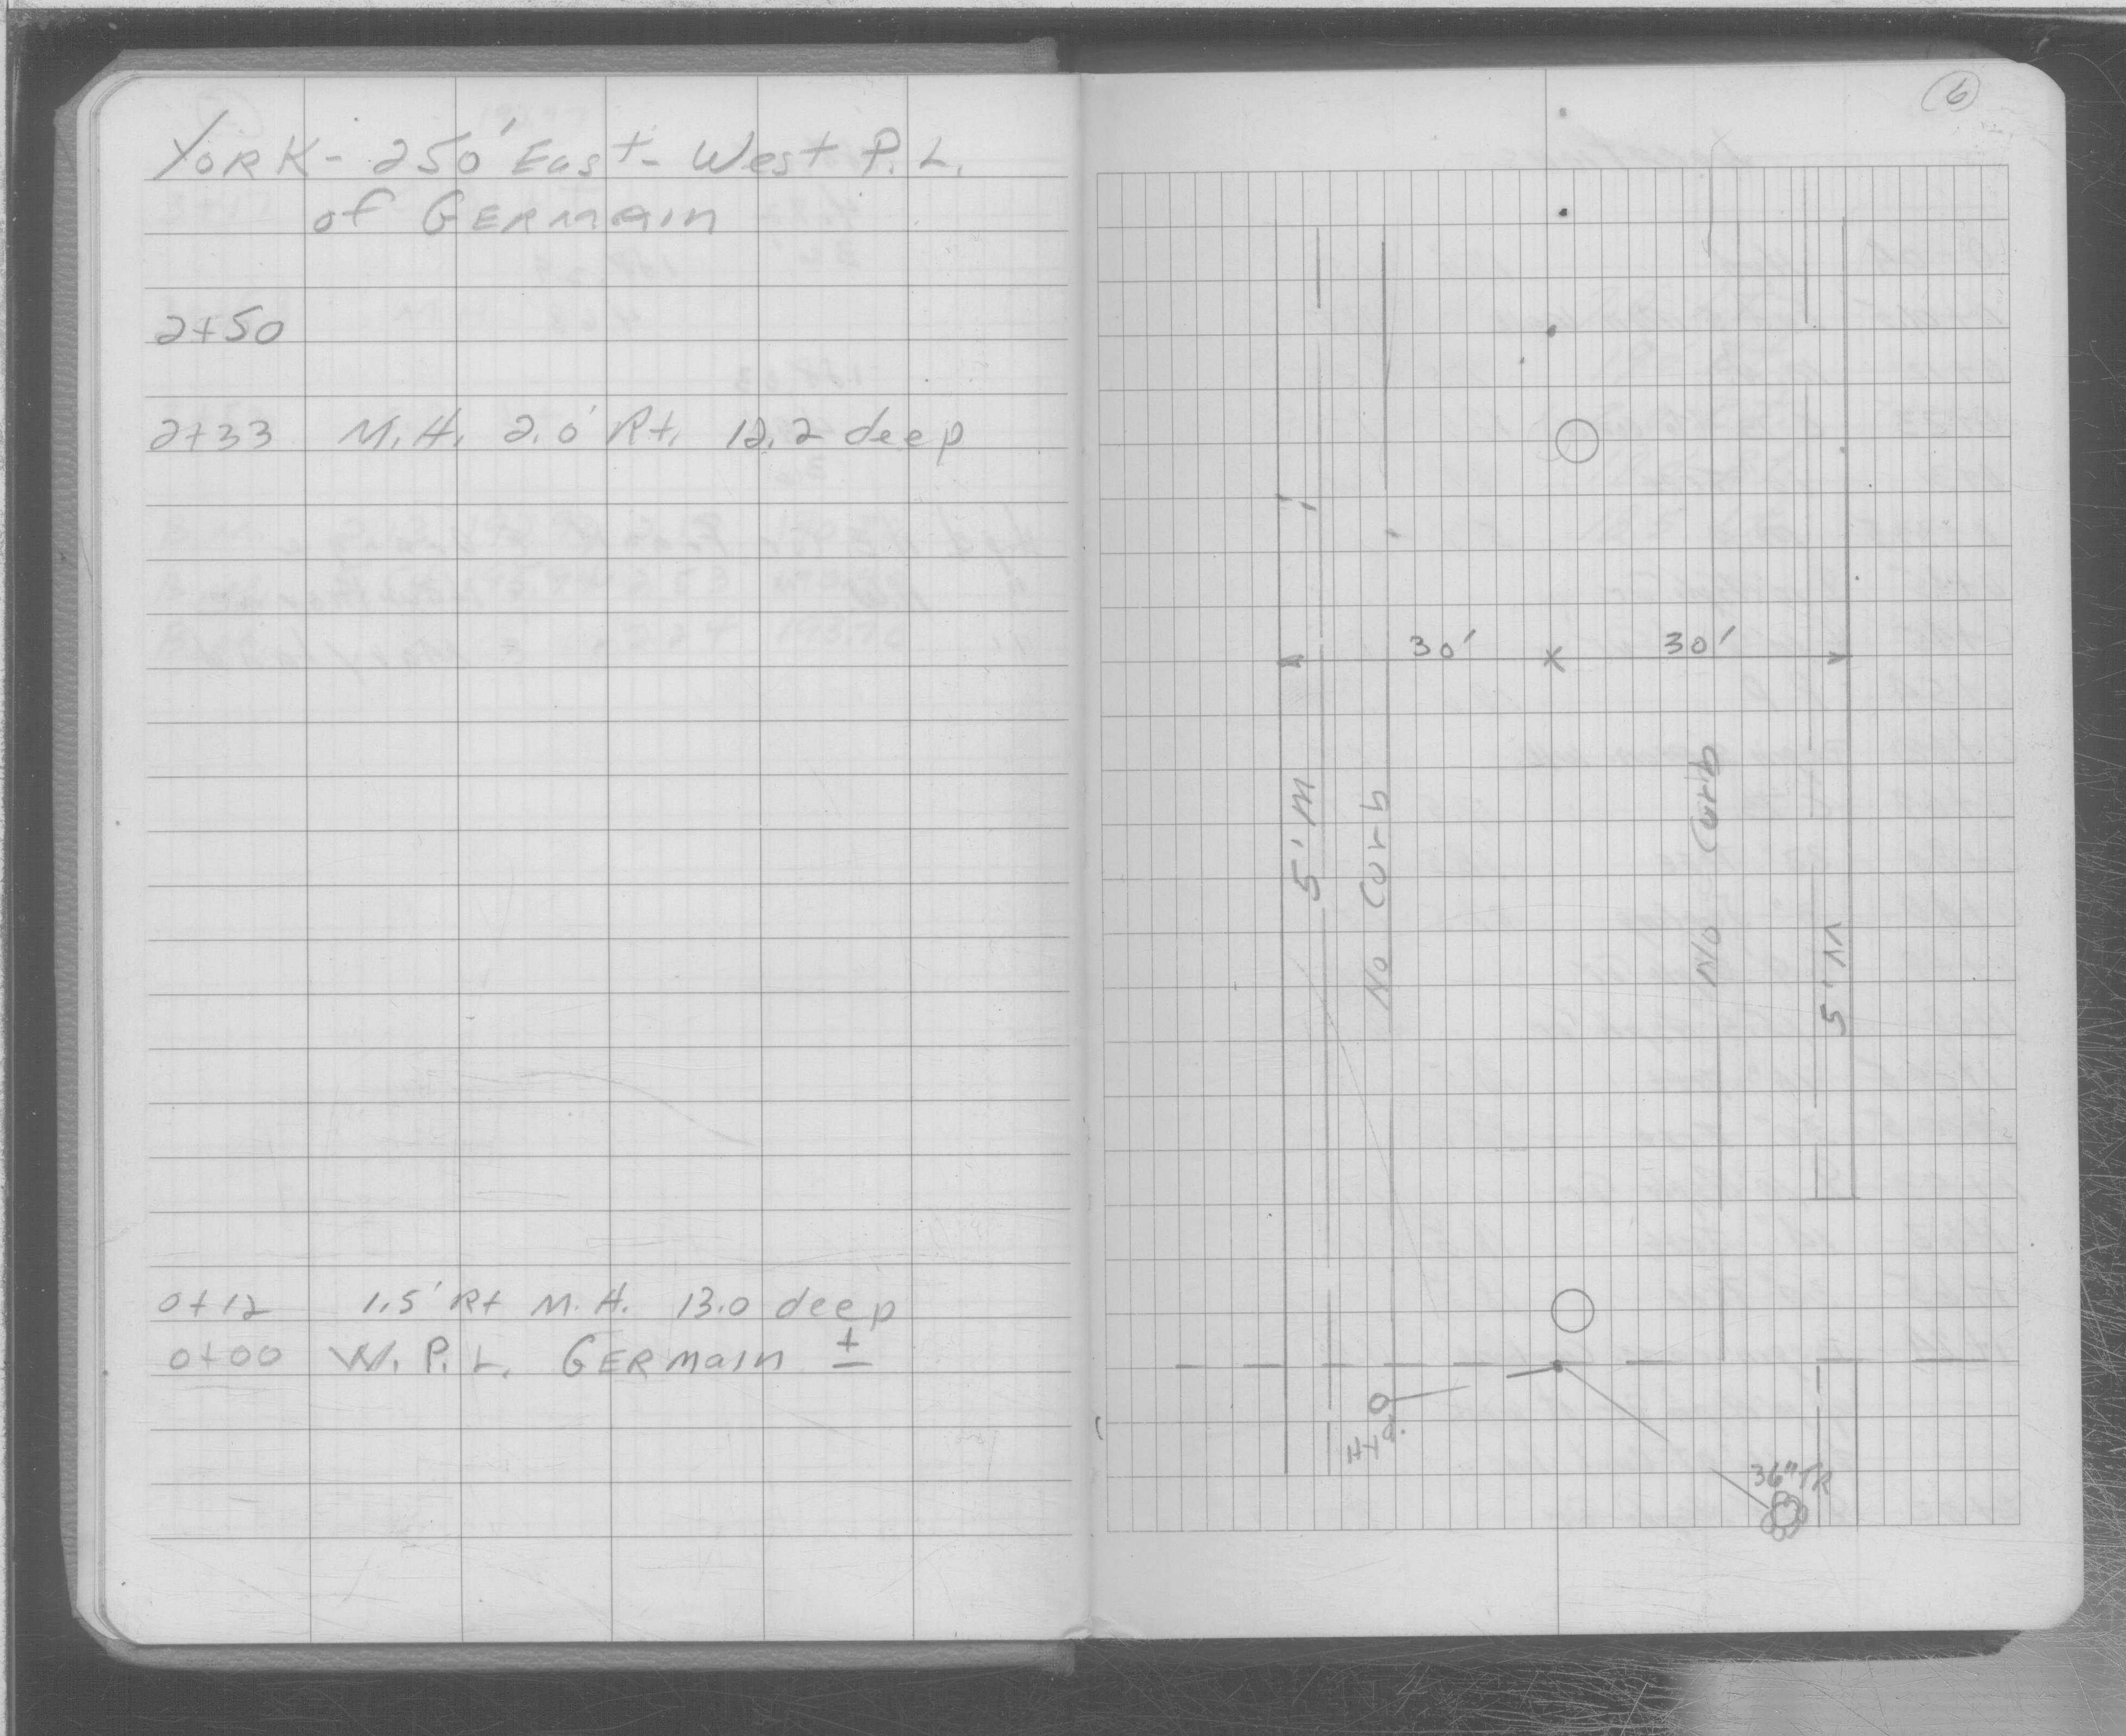 YORK - 250' East - West P.L.
of GERMAIN
2+50
2+33 M.H. 2.0' Rt. 12.2 deep
0+12 1.5' Rt M.H. 13.0 deep
0+00 W.P.L. GERMAIN ±
6
30' 30'
5' M
No Curb
No Curb
5' M
Hyd.
36" TR